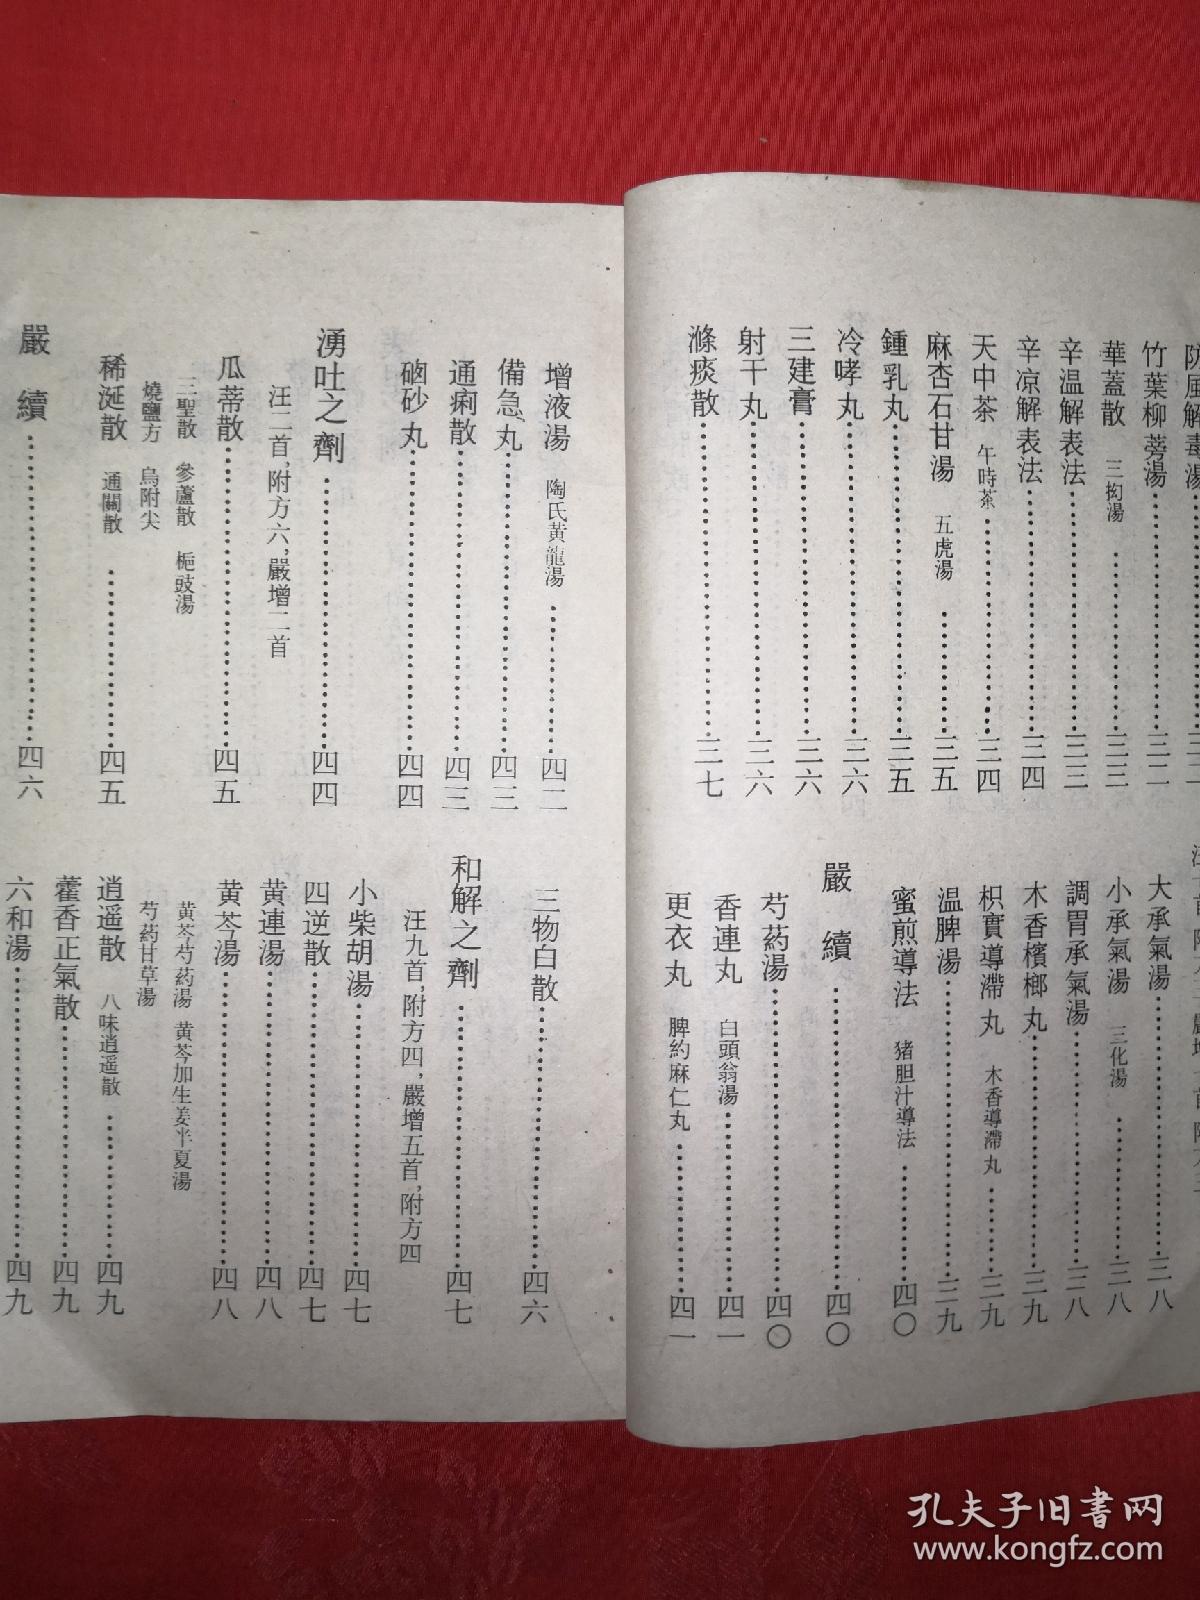 防風解毒湯
竹葉柳蒡湯……三二
華蓋散 三拗湯……三三
辛温解表法……三三
辛凉解表法……三四
天中茶 午時茶……三四
麻杏石甘湯 五虎湯……三五
鍾乳丸……三五
冷哮丸……三六
三建膏……三六
射干丸……三六
滌痰散……三七
大承氣湯……三八
小承氣湯 三化湯……三八
調胃承氣湯……三八
木香檳榔丸……三九
枳實導滯丸 木香導滯丸……三九
温脾湯……三九
蜜煎導法 猪胆汁導法……四〇
嚴續……四〇
芍药湯……四〇
香連丸 白頭翁湯……四一
更衣丸 脾約麻仁丸……四一
增液湯 陶氏黃龍湯……四二
備急丸……四三
通痢散……四三
硇砂丸……四四
湧吐之劑……四四
汪二首,附方六,嚴增二首
瓜蒂散……四五
三聖散 參蘆散 梔豉湯
燒鹽方 烏附尖
稀涎散 通關散……四五
嚴續……四六
三物白散……四六
和解之劑……四七
汪九首,附方四,嚴增五首,附方四
小柴胡湯……四七
四逆散……四七
黄連湯……四八
黄芩湯……四八
黄芩芍药湯 黄芩加生姜半夏湯
芍药甘草湯
逍遥散 八味逍遥散……四九
藿香正氣散……四九
六和湯……四九
孔夫子旧書网
www.kongfz.com